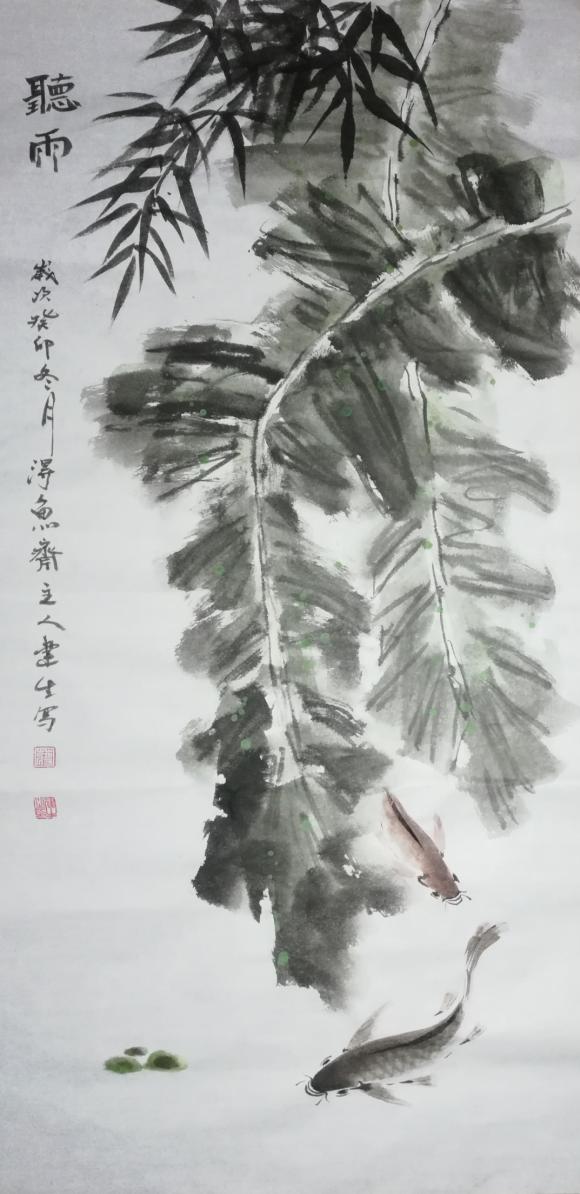 聽雨
歲次癸卯冬月得魚齋主人建生寫